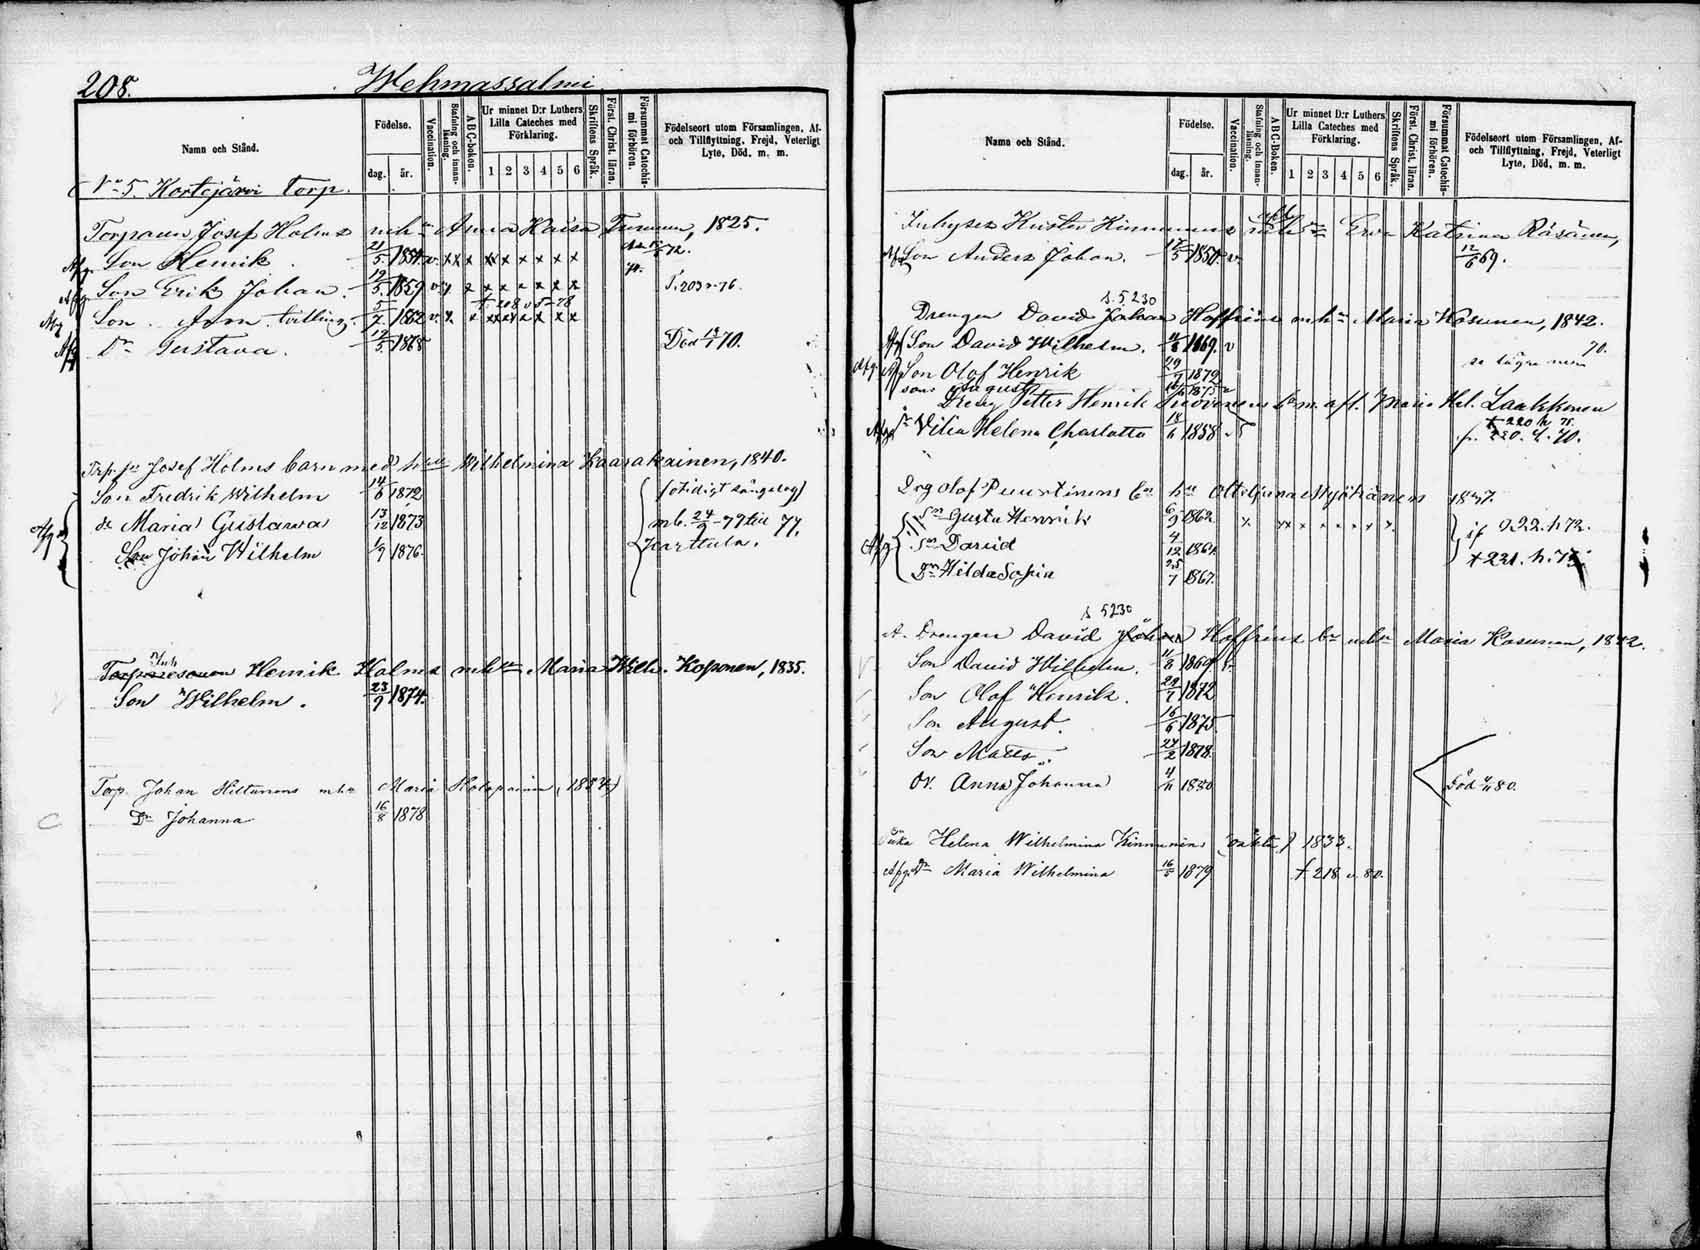 208.
Wehmassalmi
Namn och Stånd.
Födelse.
dag. år.
Vaccination.
Stafning och innan-läsning.
A B C-boken.
Ur minnet D:r Luthers Lilla Cateches med Förklaring.
1 2 3 4 5 6
Skriftens Språk.
Först. Christ. läran.
Försummat Catechis-mi förhören.
Födelseort utom Församlingen, Af- och Tillflyttning, Frejd, Veterligt Lyte, Död, m. m.
No 5. Kortejärvi torp.
Torparen Josef Holms mhu Anna Kaisa Turunen, 1825.
Afg. Son Henrik. 21/5 1854. v. x x x x x x x x 72.
Afg. Son Erik Johan. 19/5 1859 v. x x x x x x x x f. 203 v. 76.
† 208 v 5-78
Afg Son Aron tvilling. 5/7 1862 v. x x x x x x x x
Afg Dr Gustava. 17/5 1865 Död 70.
Trp. sn Josef Holms barn med hu Wilhelmina Kaarakainen, 1840.
Son Fredrik Wilhelm 14/6 1872
Afg dr Maria Gustawa 13/12 1873 mb. 24/9 - 77 till
Son Johan Wilhelm 1/9 1876. Karttula. 77.
Inh
Torparesonen Henrik Holms mhu Maria Wilh. Koponen, 1835.
Son Wilhelm. 23/9 1874.
Torp. Johan Hiltunens mhu Maria Holopainen, 1834
Dr Johanna 16/8 1878
Namn och Stånd.
Födelse.
dag. år.
Vaccination.
Stafning och innan-läsning.
ABC-Boken.
Ur minnet D:r Luthers Lilla Cateches med Förklaring.
1 2 3 4 5 6
Skriftens Språk.
Först. Christ. läran.
Försummat Catechis-mi förhören.
Födelseort utom Församlingen, Af- och Tillflyttning, Frejd, Veterligt Lyte, Död, m. m.
Inhyses Krister Kinnunens enka Eva Katrina Räsänen,
Son Anders Johan. 17/5 1850. v. 12/6 69.
s. 5. 230
Drengen David Johan Hoffréns mhu Maria Kosunen, 1842.
70.
Afg Son David Wilhelm. 11/8 1869. v
Afg. Son Olof Henrik 29/7 1872
son August 16/6 1875
Dreng Petter Henrik Maria Hel. Laakkonen
† 220 h
Afg Dr Vilia Helena Charlotta 18/6 1858 v fr. 220. 4. 70.
Drg Olof Puustinens bn hu 1837.
Sn Gusta Henrik 6/9 1862 x x x x x x x x x if 222. h 72.
Afg Sn David 4/12 1864
† 221. h. 73
Dr Hilda Sofia 25/7 1867.
s 5230
A. Drengen David Johan Hoffréns bn mhu Maria Kosunen, 1842.
Son David Wilhelm. 11/8 1869 v.
Son Olof Henrik. 29/7 1872
Son August. 16/6 1875
Son Matts 24/2 1878.
Dr. Anna Johanna 4/11 1880 Död 80.
Enka Helena Wilhelmina Kinnunen 1833.
Afg. Dr Maria Wilhelmina 16/5 1879 † 218 v. 80.